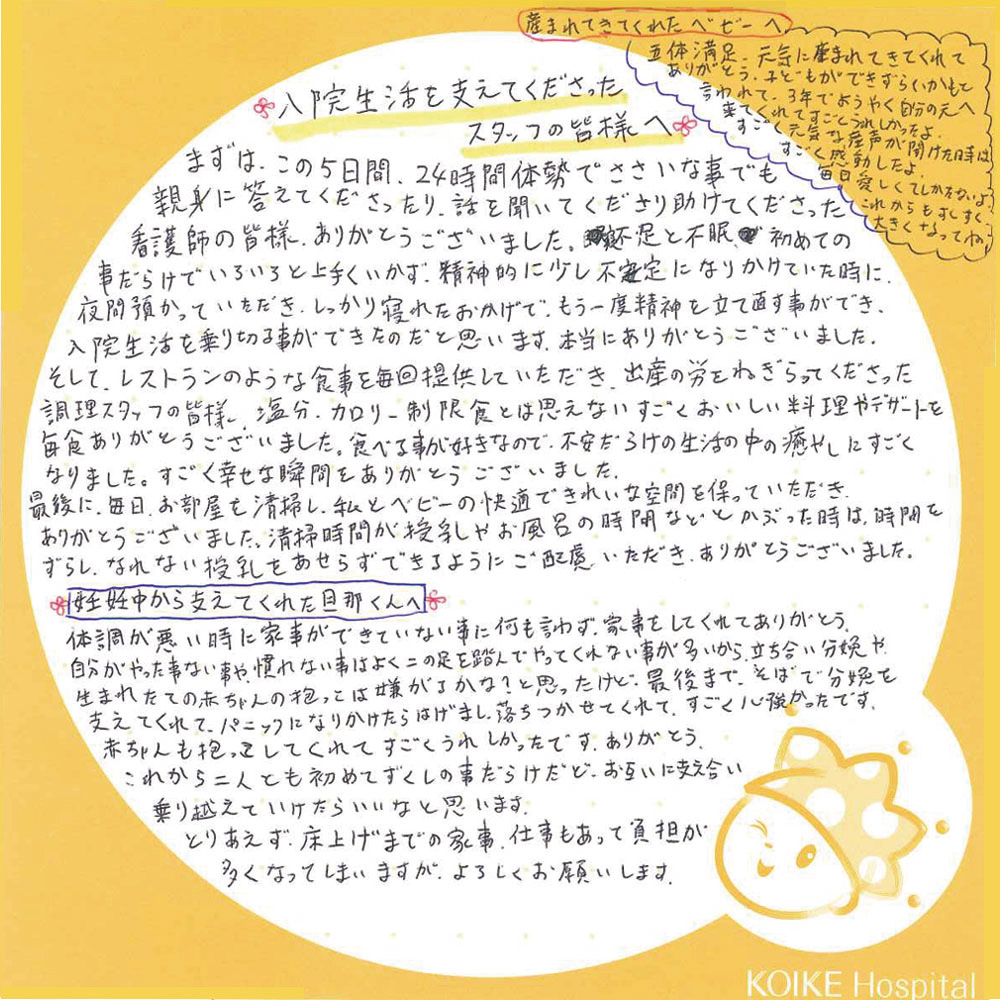 産まれてきてくれたベビーへ
五体満足、元気に産まれてきてくれて
ありがとう。子どもができずらいかもと
言われて、3年でようやく自分の元へ
来てくれてすごくうれしかったよ。
すごく元気な産声が聞けた時は
すごく感動したよ。
毎日愛しくてしかたないよ
これからもすくすく
大きくなってね
入院生活を支えてくださった
スタッフの皆様へ
まずは、この5日間、24時間体勢でささいな事でも
親身に答えてくださったり、話を聞いてくださり助けてくださった
看護師の皆様、ありがとうございました。不足と不眠で初めての
事だらけでいろいろと上手くいかず、精神的に少し不安定になりかけていた時に、
夜間預かっていただき、しっかり寝れたおかげで、もう一度精神を立て直す事ができ、
入院生活を乗り切る事ができたのだと思います。本当にありがとうございました。
そして、レストランのような食事を毎回提供していただき、出産の労をねぎらってくださった
調理スタッフの皆様、塩分、カロリー制限食とは思えないすごくおいしい料理やデザートを
毎食ありがとうございました。食べる事が好きなので、不安だらけの生活の中の癒やしにすごく
なりました。すごく幸せな瞬間をありがとうございました。
最後に、毎日、お部屋を清掃し、私とベビーの快適できれいな空間を保っていただき、
ありがとうございました。清掃時間が授乳やお風呂の時間などとかぶった時は、時間を
ずらし、なれない授乳をあせらずできるようにご配慮いただき、ありがとうございました。
妊娠中から支えてくれた旦那くんへ
体調が悪い時に家事ができていない事に何も言わず、家事をしてくれてありがとう。
自分がやった事ない事や、慣れない事はよく二の足を踏んでやってくれない事が多いから、立ち合い分娩や、
生まれたての赤ちゃんの抱っこは嫌がるかな?と思ったけど、最後まで、そばで分娩を
支えてくれて、パニックになりかけたらはげまし、落ちつかせてくれて、すごく心強かったです。
赤ちゃんも抱っこしてくれてすごくうれしかったです。ありがとう。
これから二人とも初めてずくしの事だらけだけど、お互いに支え合い
乗り越えていけたらいいなと思います。
とりあえず、床上げまでの家事、仕事もあって負担が
多くなってしまいますが、よろしくお願いします。
KOIKE Hospital